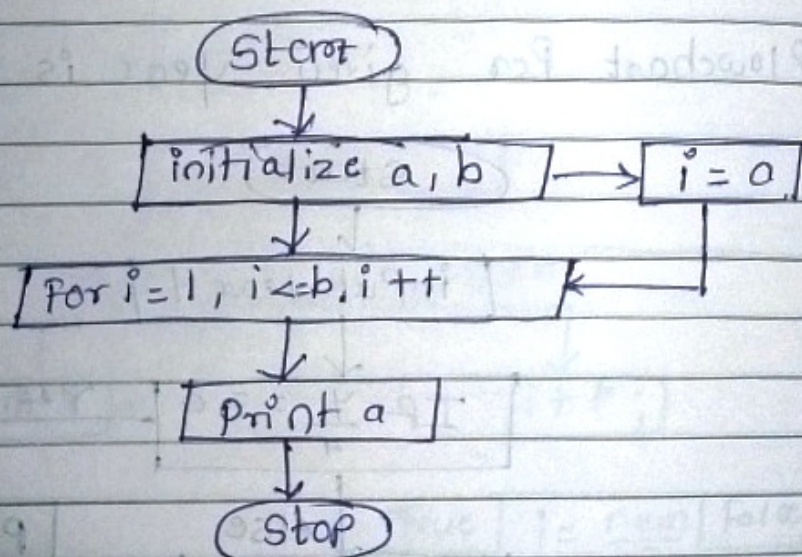 Start
initialize a, b
i = 0
For i = 1, i <= b, i ++
Print a
Stop